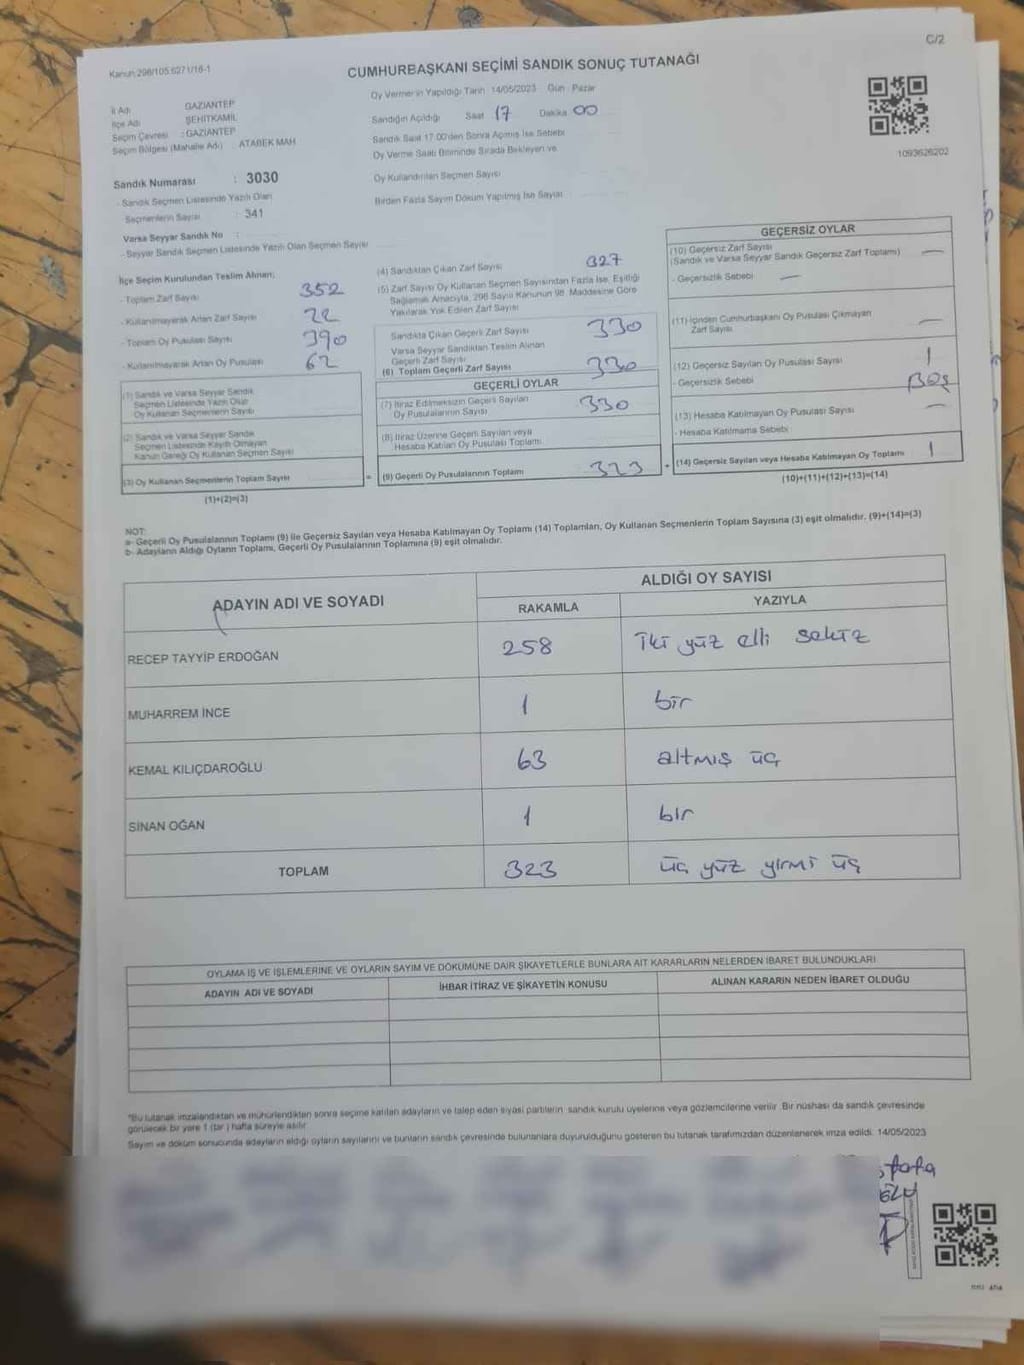 C/2
Kanun:298/105.6271/16-1
CUMHURBAŞKANI SEÇİMİ SANDIK SONUÇ TUTANAĞI
İl Adı GAZIANTEP
İlçe Adı ŞEHİTKAMİL
Seçim Çevresi : GAZIANTEP
Seçim Bölgesi (Mahalle Adı) : ATABEK MAH
Oy Vermenin Yapıldığı Tarih 14/05/2023 Gün Pazar
Sandığın Açıldığı Saat 17 Dakika 00
Sandık Saat 17.00'den Sonra Açılmış İse Sebebi
Oy Verme Saati Bitiminde Sırada Bekleyen ve
Oy Kullandırılan Seçmen Sayısı
Birden Fazla Sayım Döküm Yapılmış İse Sayısı
1093626202
Sandık Numarası : 3030
- Sandık Seçmen Listesinde Yazılı Olan
Seçmenlerin Sayısı : 341
Varsa Seyyar Sandık No :
- Seyyar Sandık Seçmen Listesinde Yazılı Olan Seçmen Sayısı
İlçe Seçim Kurulundan Teslim Alınan;
- Toplam Zarf Sayısı 352
- Kullanılmayarak Artan Zarf Sayısı 22
- Toplam Oy Pusulası Sayısı 390
- Kullanılmayarak Artan Oy Pusulası 62
(1) Sandık ve Varsa Seyyar Sandık
Seçmen Listesinde Yazılı Olup
Oy Kullanan Seçmenlerin Sayısı
(2) Sandık ve Varsa Seyyar Sandık
Seçmen Listesinde Kayıtlı Olmayan
Kanun Gereği Oy Kullanan Seçmen Sayısı
(3) Oy Kullanan Seçmenlerin Toplam Sayısı
(1)+(2)=(3)
(4) Sandıktan Çıkan Zarf Sayısı 327
(5) Zarf Sayısı Oy Kullanan Seçmen Sayısından Fazla İse, Eşitliği
Sağlamak Amacıyla, 298 Sayılı Kanunun 98. Maddesine Göre
Yakılarak Yok Edilen Zarf Sayısı
Sandıkta Çıkan Geçerli Zarf Sayısı 330
Varsa Seyyar Sandıktan Teslim Alınan
Geçerli Zarf Sayısı
(6) Toplam Geçerli Zarf Sayısı 330
GEÇERLİ OYLAR
(7) İtiraz Edilmeksizin Geçerli Sayılan
Oy Pusulalarının Sayısı 330
(8) İtiraz Üzerine Geçerli Sayılan veya
Hesaba Katılan Oy Pusulası Toplamı
= (9) Geçerli Oy Pusulalarının Toplamı 323
GEÇERSİZ OYLAR
(10) Geçersiz Zarf Sayısı
(Sandık ve Varsa Seyyar Sandık Geçersiz Zarf Toplamı) —
- Geçersizlik Sebebi —
(11) İçinden Cumhurbaşkanı Oy Pusulası Çıkmayan
Zarf Sayısı —
(12) Geçersiz Sayılan Oy Pusulası Sayısı 1
- Geçersizlik Sebebi Boş
(13) Hesaba Katılmayan Oy Pusulası Sayısı —
- Hesaba Katılmama Sebebi
+ (14) Geçersiz Sayılan veya Hesaba Katılmayan Oy Toplamı 1
(10)+(11)+(12)+(13)=(14)
NOT:
a- Geçerli Oy Pusulalarının Toplamı (9) ile Geçersiz Sayılan veya Hesaba Katılmayan Oy Toplamı (14) Toplamları, Oy Kullanan Seçmenlerin Toplam Sayısına (3) eşit olmalıdır. (9)+(14)=(3)
b- Adayların Aldığı Oyların Toplamı, Geçerli Oy Pusulalarının Toplamına (9) eşit olmalıdır.
ADAYIN ADI VE SOYADI
ALDIĞI OY SAYISI
RAKAMLA YAZIYLA
RECEP TAYYİP ERDOĞAN 258 iki yüz elli sekiz
MUHARREM İNCE 1 bir
KEMAL KILIÇDAROĞLU 63 altmış üç
SİNAN OĞAN 1 bir
TOPLAM 323 üç yüz yirmi üç
OYLAMA İŞ VE İŞLEMLERİNE VE OYLARIN SAYIM VE DÖKÜMÜNE DAİR ŞİKAYETLERLE BUNLARA AİT KARARLARIN NELERDEN İBARET BULUNDUKLARI
ADAYIN ADI VE SOYADI İHBAR İTİRAZ VE ŞİKAYETİN KONUSU ALINAN KARARIN NEDEN İBARET OLDUĞU
*Bu tutanak imzalandıktan ve mühürlendikten sonra seçime katılan adayların ve talep eden siyasi partilerin sandık kurulu üyelerine veya gözlemcilerine verilir. Bir nüshası da sandık çevresinde
görülecek bir yere 1 (bir ) hafta süreyle asılır.
Sayım ve döküm sonucunda adayların aldığı oyların sayılarını ve bunların sandık çevresinde bulunanlara duyurulduğunu gösteren bu tutanak tarafımızdan düzenlenerek imza edildi. 14/05/2023